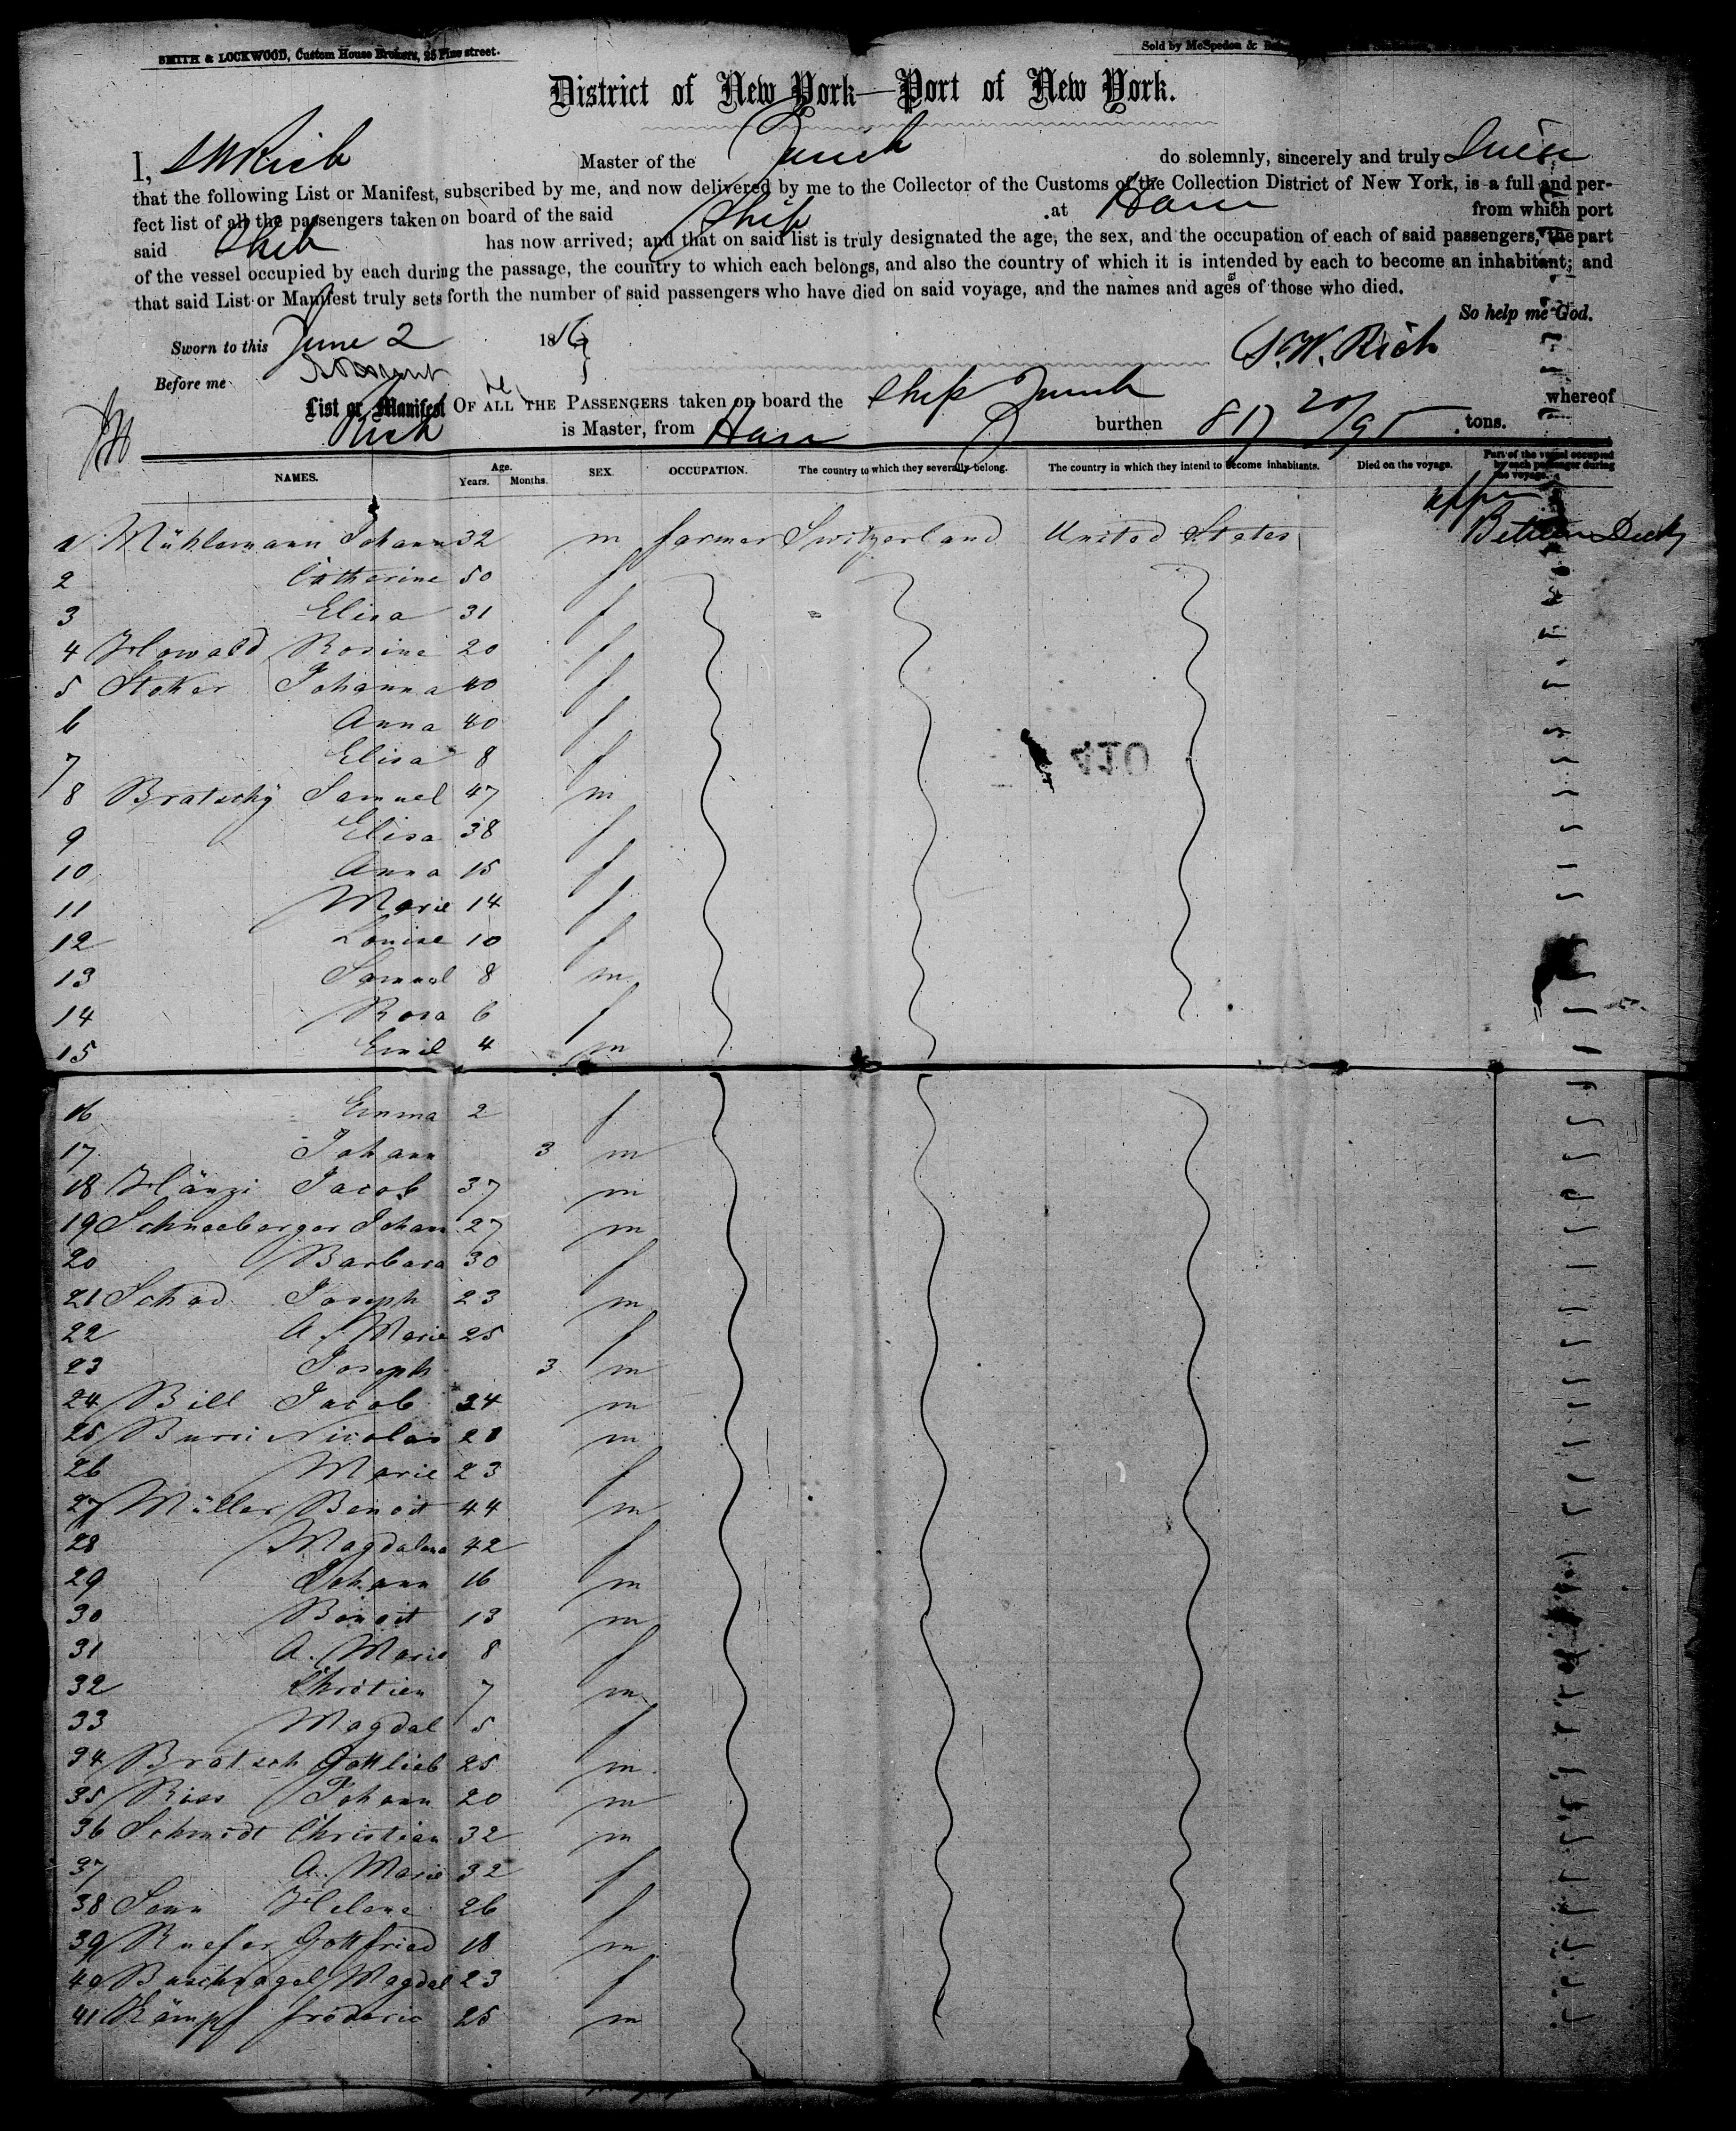 SMITH & LOCKWOOD, Custom House Brokers, 25 Pine street.
Sold by McSpedon &
District of New York—Port of New York.
I, S W Rich Master of the Zurich do solemnly, sincerely and truly Swear
that the following List or Manifest, subscribed by me, and now delivered by me to the Collector of the Customs of the Collection District of New York, is a full and per-
fect list of all the passengers taken on board of the said Ship at Havre from which port
said Ship has now arrived; and that on said list is truly designated the age, the sex, and the occupation of each of said passengers, the part
of the vessel occupied by each during the passage, the country to which each belongs, and also the country of which it is intended by each to become an inhabitant; and
that said List or Manifest truly sets forth the number of said passengers who have died on said voyage, and the names and ages of those who died.
So help me God.
Sworn to this June 2 18
S. W. Rich
Before me
List or Manifest OF ALL THE PASSENGERS taken on board the Ship Zurich whereof
Rich is Master, from Havre burthen 817 20/95 tons.
NAMES. Age. Years. Months. SEX. OCCUPATION. The country to which they severally belong. The country in which they intend to become inhabitants. Died on the voyage. Part of the vessel occupied by each passenger during the voyage.
upper
1 Mühlemann Johann 32 m farmer Switzerland United States Between Decks
2 Catherine 50 f
3 Elisa 31 f
4 Howald Rosine 20 f
5 Stoker Johanna 40 f
6 Anna 40 f
7 Elisa 8 f
410
8 Bratschy Samuel 47 m
9 Elisa 38 f
10 Anna 15 f
11 Marie 14 f
12 Louise 10 f
13 Samuel 8 m
14 Rosa 6 f
15 Emil 4 m
16 Emma 2 f
17 Johann 3 m
18 Hänzi Jacob 37 m
19 Schneeberger Johann 27 m
20 Barbara 30 f
21 Schad Joseph 23 m
22 A. Marie 25 f
23 Joseph 3 m
24 Bill Jacob 24 m
25 Burri Nicolas 28 m
26 Marie 23 f
27 Müller Benoit 44 m
28 Magdalena 42 f
29 Johann 16 m
30 Benoit 13 m
31 A. Marie 8 f
32 Christien 7 m
33 Magdal 5 f
34 Bratsch Gottlieb 25 m
35 Riss Johann 20 m
36 Schmidt Christian 32 m
37 A. Marie 32 f
38 Senn Helene 26 f
39 Ruefer Gottfried 18 m
40 Buschnagel Magdal 23 f
41 Kämpf frederic 25 m